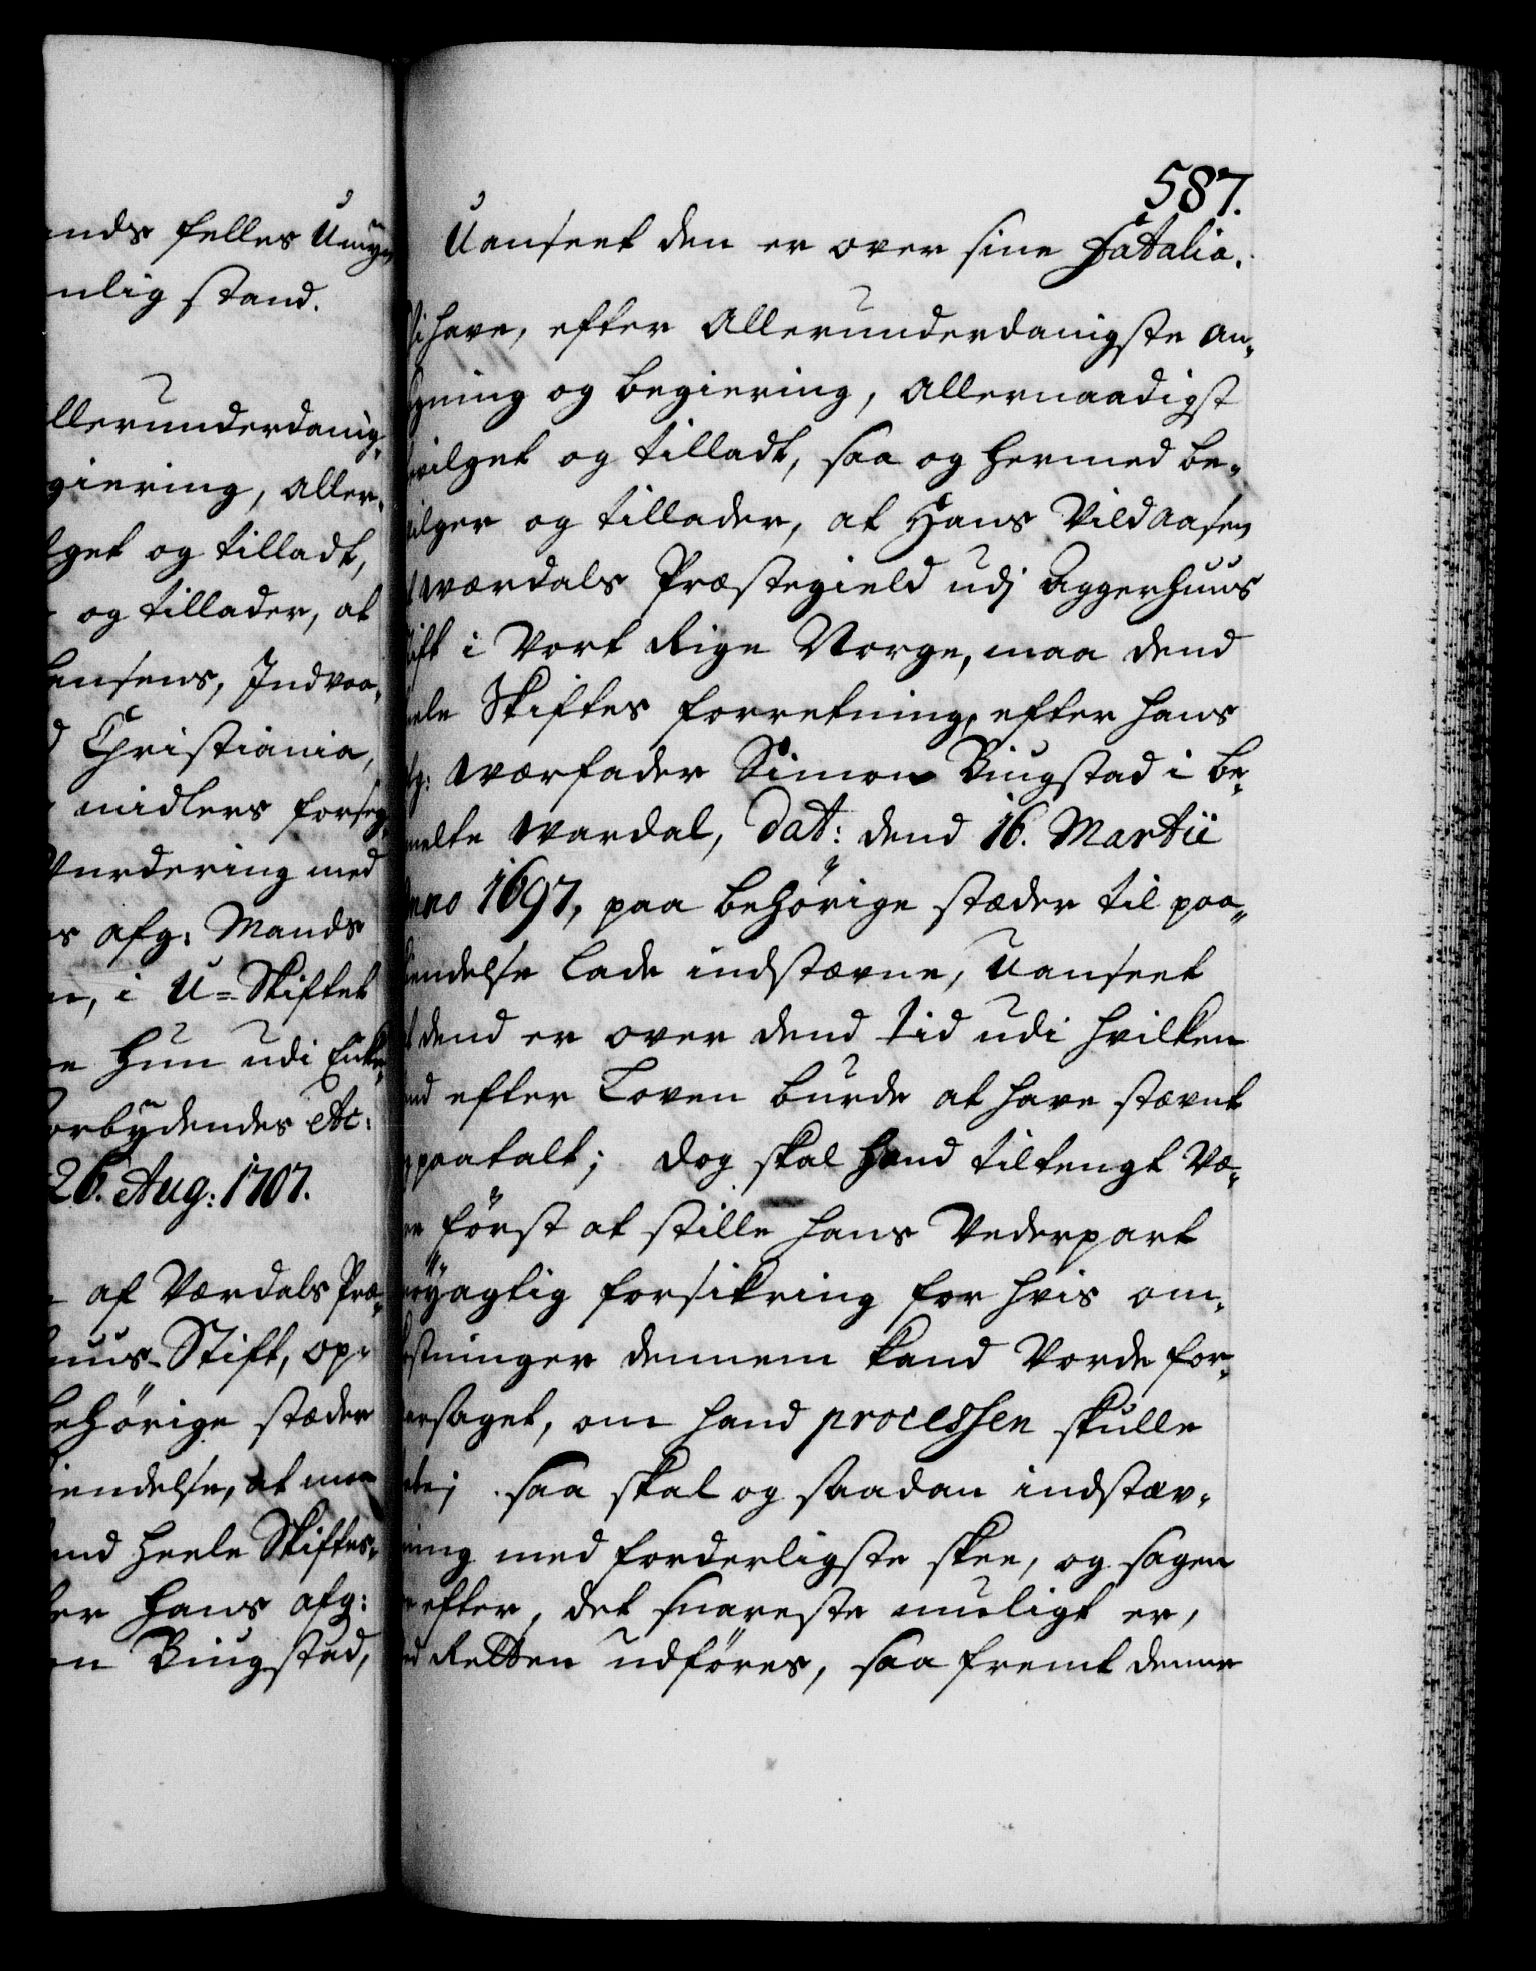 ands felles Umyn
nlig stand.
llerunderdanig-
giering, aller-
lget og tilladt,
og tillader, at
ensens, Indvaa-
d Christiania,
midlers forseg-
Vurdering med
s afg: Mands
n, i U-Skiftet
e hun udi Enke-
orbydendes etc:
26. Aug: 1707.
af Værdals Præ-
uus-Stift, op-
ehörige stæder
iendelse, at maa
end heele Skiftes-
ter hans afg:
on Biugstad,
587.
Uanseet den er over sine Fatalia.
Vi have, efter Allerunderdanigste an-
gning og begiering, Allernaadigst
vilget og tilladt, saa og hermed be-
vilger og tillader, at Hans Vildaasen
Wærdals Præstegield udj Aggerhuus
tift i Vort Rige Norge, maa dend
eele Skiftes forretning, efter hans
fg: Wærfader Simon Biugstad i be-
melte Wardal, Dat: dend 16. Martii
Anno 1697, paa behörige stæder til paa-
kiendelse lade indstævne, Uanseet
t dend er over dend tid udi hvilken
end efter Loven burde at have stævnt
g paatalt; dog skal hand tiltengt Væ-
re först at stille hans Vederpart
nöyagtig forsikring for hvis om-
kostninger dennem kand Vorde for-
aarsaget, om hand processen skulle
abe; saa skal og saadan indstæv-
ning med forderligste skee, og sagen
r efter, det snareste mueligt er,
ed Retten udföres, saa fremt denne